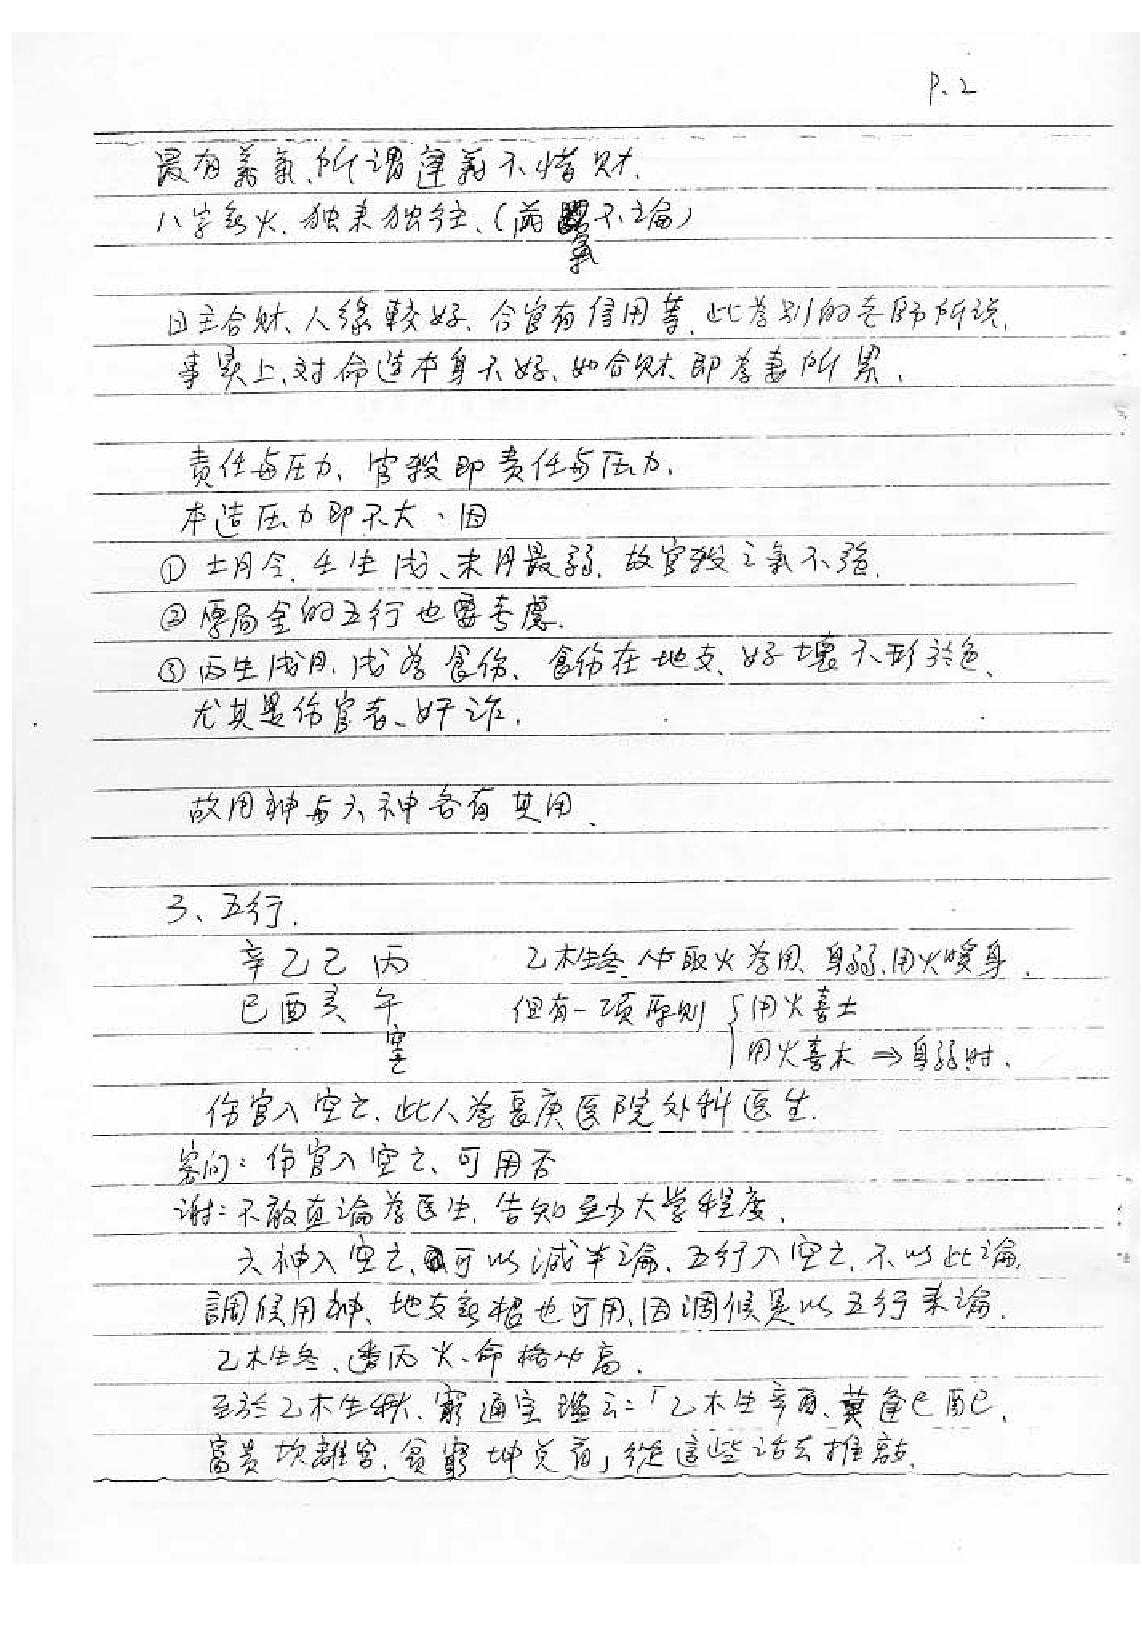 P.2
最有義氣、所謂逢義不惜财.
八字無火、独来独往、(兩氣不主論)
日主合财、人緣較好、合官有信用等、此為别的老師所說.
事實上、对命造本身不好、如合财、即為妻所累.
责任与压力、官殺即责任与压力.
本造压力即不大、因
① 土月令、壬生戌、未月最弱、故官殺之氣不强.
② 原局金的五行也要考慮.
③ 丙生戌月、戌為食伤、食伤在地支、好壞不形於色、
尤其是伤官者、奸诈.
故用神与六神各有其用.
3、五行.
辛乙己丙 乙木生冬、必取火為用、身弱、用火暖身.
巳酉亥午 但有一项原则 { 用火喜土
空亡 用火喜木 ⇒ 身弱时.
伤官入空亡、此人為長庚医院外科医生.
客问: 伤官入空亡、可用否
谢: 不敢直論為医生、告知至少大学程度.
六神入空亡、可以減半論、五行入空亡、不以此論.
調候用神、地支無根也可用、因調候是以五行来論.
乙木生冬、透丙火、命格必高.
至於乙木生秋、窮通宝鑑云:「乙木生辛酉、莫逢巳酉巳、
富貴坎離宮、貧窮坤兑有」從這些话去推敲.